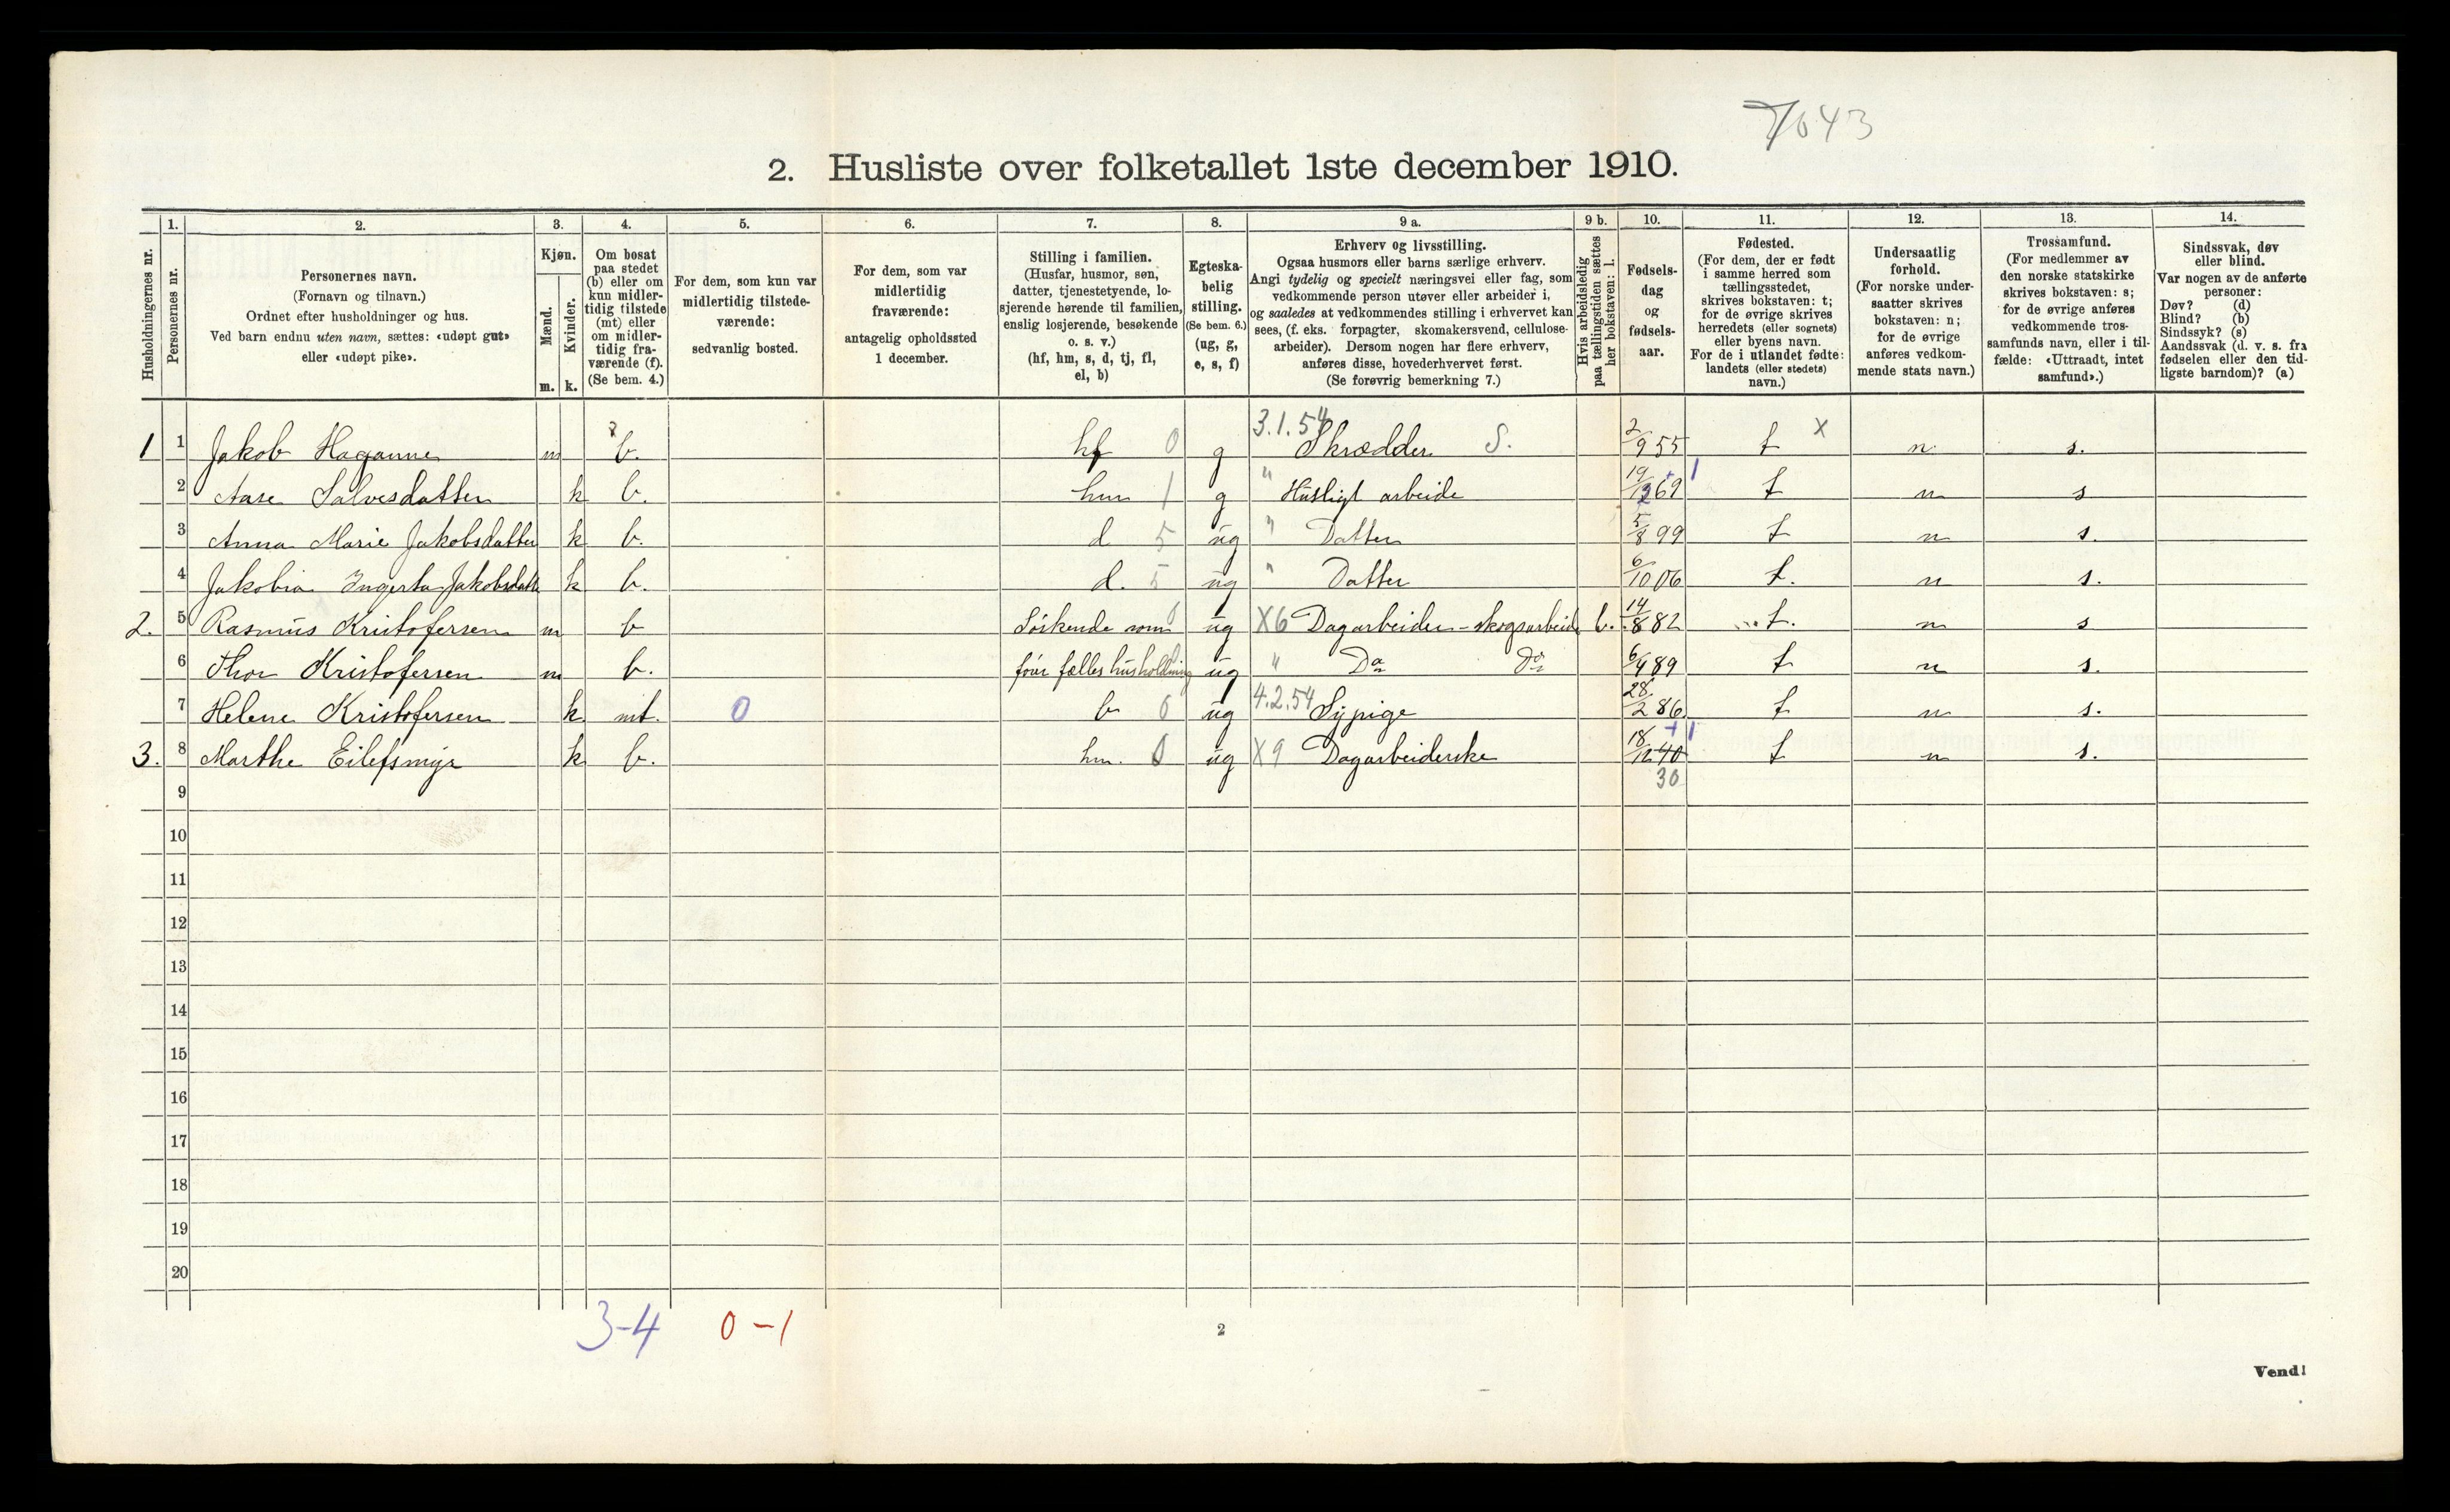 7043
2. Husliste over folketallet 1ste december 1910.
Husholdningernes nr.
1.
Personernes nr.
2.
Personernes navn.
(Fornavn og tilnavn.)
Ordnet efter husholdninger og hus.
Ved barn endnu uten navn, sættes: «udøpt gut»
eller «udøpt pike».
3.
Kjøn.
Mænd.
m.
Kvinder.
k.
4.
Om bosat
paa stedet
(b) eller om
kun midler-
tidig tilstede
(mt) eller
om midler-
tidig fra-
værende (f).
(Se bem. 4.)
5.
For dem, som kun var
midlertidig tilstede-
værende:
sedvanlig bosted.
6.
For dem, som var
midlertidig
fraværende:
antagelig opholdssted
1 december.
7.
Stilling i familien.
(Husfar, husmor, søn,
datter, tjenestetyende, lo-
sjerende hørende til familien,
enslig losjerende, besøkende
o. s. v.)
(hf, hm, s, d, tj, fl,
el, b)
8.
Egteska-
belig
stilling.
(Se bem. 6.)
(ug, g,
e, s, f)
9 a.
Erhverv og livsstilling.
Ogsaa husmors eller barns særlige erhverv.
Angi tydelig og specielt næringsvei eller fag, som
vedkommende person utøver eller arbeider i,
og saaledes at vedkommendes stilling i erhvervet kan
sees, (f. eks. forpagter, skomakersvend, cellulose-
arbeider). Dersom nogen har flere erhverv,
anføres disse, hovederhvervet først.
(Se forøvrig bemerkning 7.)
9 b.
Hvis arbeidsledig
paa tællingstiden sættes
her bokstaven: l.
10.
Fødsels-
dag
og
fødsels-
aar.
11.
Fødested.
(For dem, der er født
i samme herred som
tællingsstedet,
skrives bokstaven: t;
for de øvrige skrives
herredets (eller sognets)
eller byens navn.
For de i utlandet fødte:
landets (eller stedets)
navn.)
12.
Undersaatlig
forhold.
(For norske under-
saatter skrives
bokstaven: n;
for de øvrige
anføres vedkom-
mende stats navn.)
13.
Trossamfund.
(For medlemmer av
den norske statskirke
skrives bokstaven: s;
for de øvrige anføres
vedkommende tros-
samfunds navn, eller i til-
fælde: «Uttraadt, intet
samfund».)
14.
Sindssvak, døv
eller blind.
Var nogen av de anførte
personer:
Døv? (d)
Blind? (b)
Sindssyk? (s)
Aandssvak (d. v. s. fra
fødselen eller den tid-
ligste barndom)? (a)
1 1 Jakob m b. hf 0 g 3.1.54 Skrædder S. 2/9 55 t X n s.
2 Aase Salvesdatter k b. hm 1 g " Husligt arbeide 19/12 69 +1 t n s
3 Anna Marie Jakobsdatter k b. d 5 ug " Datter 5/8 99 t n s.
4 Jakobia Jakobsdatt k b. d. 5 ug " Datter 6/10 06 t. n s.
2. 5 Rasmus Kristofersen m b Söskende som 0 ug X6 Dagarbeider - skogsarbeide l. 14/8 82 t. n s
6 Thor Kristofersen m b. före fælles husholdning ug " Do Do 6/4 89 t n s.
7 Helene Kristofersen k mt. 0 b 0 ug 4.2.54 Sypige 28/2 86 t n s.
3. 8 Marthe Eilefsmyr k b. hm. 0 ug X9 Dagarbeiderske 18/12 40 +1 t n s.
9 30
10
11
12
13
14
15
16
17
18
19
20
3-4 0-1
2
Vend!